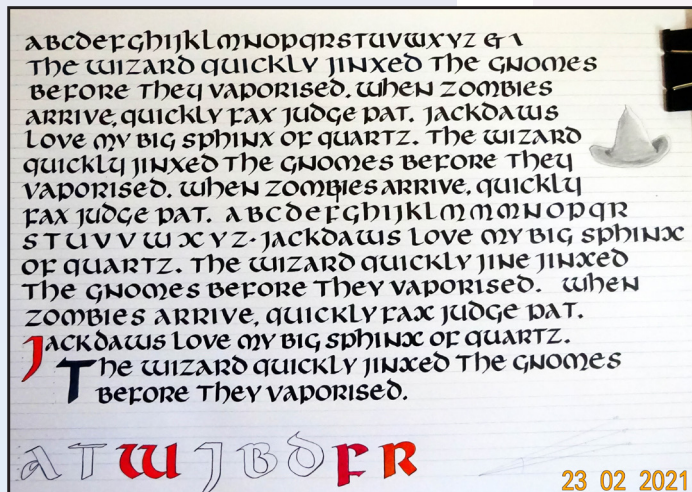 ABCDEFGHIJKLMNOPQRSTUVWXYZ &
THE WIZARD QUICKLY JINXED THE GNOMES
BEFORE THEY VAPORISED. WHEN ZOMBIES
ARRIVE, QUICKLY FAX JUDGE PAT. JACKDAWS
LOVE MY BIG SPHINX OF QUARTZ. THE WIZARD
QUICKLY JINXED THE GNOMES BEFORE THEY
VAPORISED. WHEN ZOMBIES ARRIVE, QUICKLY
FAX JUDGE PAT. A B C D E F G H I J K L M M M N O P Q R
S T U V V W X Y Z · JACKDAWS LOVE MY BIG SPHINX
OF QUARTZ. THE WIZARD QUICKLY JINE JINXED
THE GNOMES BEFORE THEY VAPORISED. WHEN
ZOMBIES ARRIVE, QUICKLY FAX JUDGE PAT.
JACKDAWS LOVE MY BIG SPHINX OF QUARTZ.
THE WIZARD QUICKLY JINXED THE GNOMES
BEFORE THEY VAPORISED.
A T W J B D F R
23 02 2021